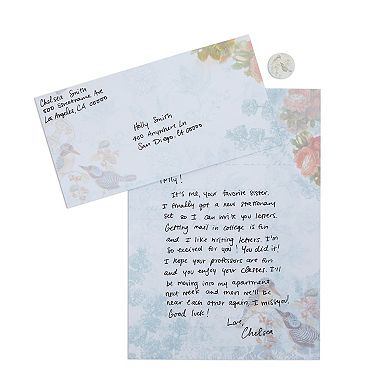 Chelsea Smith
500 Streetname Ave
Los Angeles, CA 00000
Holly Smith
400 Anywhere Ln
San Diego, CA 00000
Holly!
It's me, your favorite sister.
I finally got a new stationary
set so I can write you letters.
Getting mail in college is fun
and I like writing letters. I'm
so excited for you! You did it!
I hope your professors are fun
and you enjoy your classes. I'll
be moving into my apartment
next week and then we'll be
near each other again. I miss you!
Good luck!
Love,
Chelsea